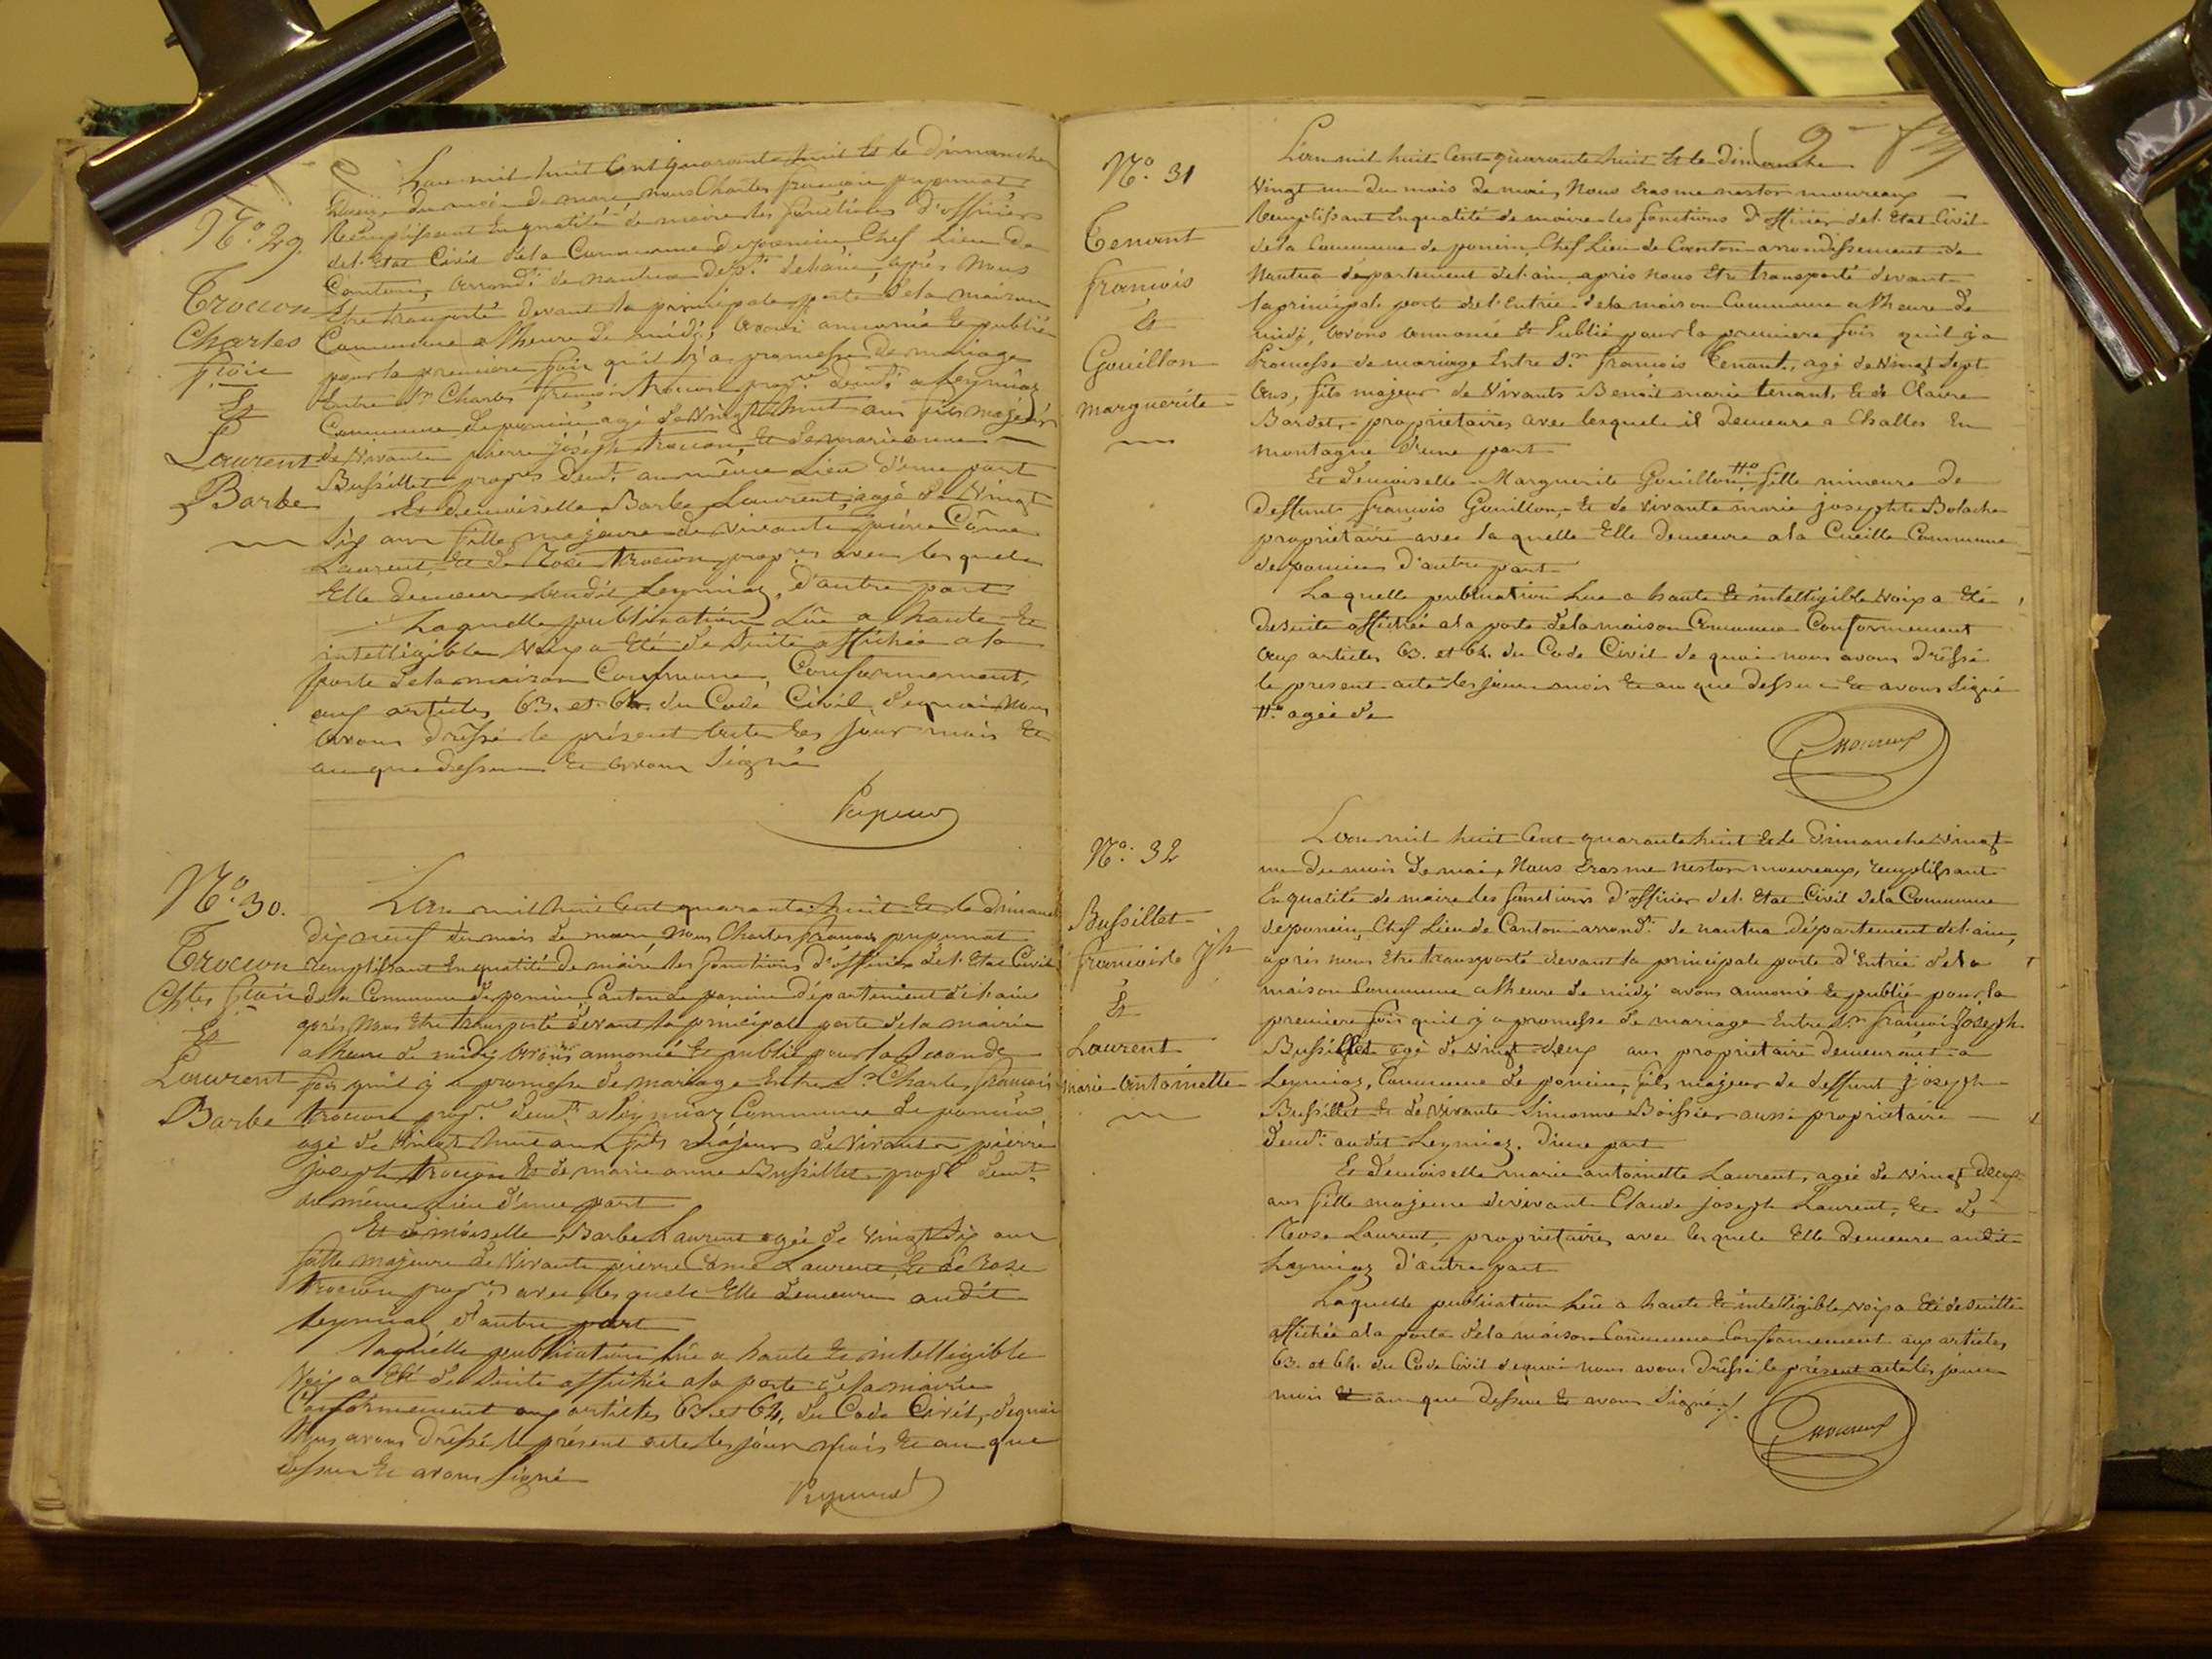 N.º 29.
Trocon
Charles
f.çois
Et
Laurent
Barbe
L'an mil huit Cent quarante huit Et le Dimanche
Douze du mois de mars, nous Charles françois
Remplissant En qualité de maire les fonctions d'officier
del'Etat Civil dela Commune de poncin, Chef Lieu de
Canton, arrond.t de nantua dep.t delain, après Nous
Etre transporté devant la principale porte dela maison
Commune a lheure de midi, avons annoncé Et publié
pour la premiere fois qu'il y a promesse de mariage
Entre S.r Charles françois trocon prop.re dem.t a Leymiaz
Commune de poncin, agé de Vingt huit ans fils majeur
de Vivants pierre joseph trocon, Et de marie anne
Bussillet prop.res dem.t au même Lieu d'une part
Et demoiselle Barbe Laurent, agée de Vingt
Six ans fille majeure de vivants pierre Côme
Laurent, Et de Rose trocon prop.res avec lesquels
Elle demeure audit Leymiaz, d'autre part
Laquelle publication Lûe a haute Et
intelligible Voix a Eté de Suite affichée a la
porte dela maison Commune, Conformement
aux articles 63. et 64. du Code Civil, dequoi Nous
avons dressé le présent acte les jour mois Et
an que dessus Et avons Signé
N.º 30.
Trocon
Ch.les f.çois
Et
Laurent
Barbe
L'an mil huit Cent quarante huit Et le Dimanche
dix neuf du mois de mars, Nous Charles françois
remplissant En qualité de maire les fonctions d'officier del'Etat Civil
dela Commune de poncin, Canton de poncin Département delain
après Nous Etre transporté devant la principale porte dela mairie
a lheure de midi, avons annoncé Et publié pour la Seconde
fois qu'il y a promesse de mariage Entre S.r Charles françois
trocon prop.re dem.t a Leymiaz Commune de poncin
agé de Vingt huit ans fils majeur de Vivants pierre
joseph trocon Et de marie anne Bussillet prop.res dem.t
au même Lieu d'une part
Et demoiselle Barbe Laurent agée de Vingt Six ans
fille majeure de Vivants pierre Come Laurent, Et de Rose
trocon prop.res avec lesquels Elle demeure audit
Leymiaz d'autre part
Laquelle publication lûe a haute Et intelligible
Voix a Eté de Suite affichée ala porte dela mairie
Conformement aux articles 63. et 64. du Code Civil, dequoi
Nous avons dressé le présent acte les jour mois Et an que
dessus Et avons Signé
N.º 31
Tenant
françois
Et
Gouillon
marguerite
L'an mil huit Cent quarante huit Et le dimanche
Vingt un du mois de mai, Nous Erasme nestor moureaux
Remplissant En qualité de maire les fonctions d'officier del'Etat Civil
dela Commune de poncin, Chef Lieu de Canton arrondissement de
Nantua département delain, après nous Etre transporté devant
la principale porte del'Entrée dela maison Commune a lheure de
midi, avons annoncé Et Publié pour la premiere fois quil y a
Promesse de mariage Entre S.r françois Tenant, agé de Vingt Sept
ans, fils majeur de Vivants Benoit marie tenant, Et de Claire
Bardet, propriétaires avec lesquels il demeure a Challes En
montagne d'une part
Et demoiselle Marguerite Gouillon, fille mineure de
deffunt françois Gouillon, Et de Vivante marie josephte Bolache
propriétaire avec laquelle Elle demeure ala Cueille Commune
deponcin d'autre part
Laquelle publication Lue a haute Et intelligible Voix a Eté
desuite affichée ala porte dela maison Commune Conformement
aux articles 63. et 64. du Code Civil de quoi nous avons dressé
le present acte les jour mois Et an que dessus Et avons Signé
agée de
Moureaux
N.º 32
Bussillet
françois J.ph
Et
Laurent
marie Antoinette
L'an mil huit Cent quarante huit Et le Dimanche Vingt
un du mois de mai, Nous Erasme nestor moureaux, remplissant
En qualité de maire les fonctions d'officier del'Etat Civil dela Commune
deponcin, Chef Lieu de Canton arrond.t de nantua département delain,
après nous Etre transporté devant la principale porte d'Entrée dela
maison Commune a lheure de midi avons annoncé Et publié pour la
premiere fois quil y a promesse de mariage Entre S.r françois Joseph
Bussillet agé de Vingt deux ans propriétaire demeurant a
Leymiaz, Commune de poncin, fils majeur de deffunt joseph
Bussillet Et de Vivante Simonne Boissier aussi propriétaire
dem.t audit Leymiaz. d'une part
Et demoiselle marie antoinette Laurent, agée de Vingt Deux
ans fille majeure devivants Claude joseph Laurent, Et de
Rose Laurent, propriétaires avec lesquels Elle demeure audit
Leymiaz d'autre part
Laquelle publication Lûe a haute Et intelligible voix a Eté desuitte
affichée ala porte dela maison Commune Conformement aux articles
63. et 64. du Code Civil dequoi nous avons dréssé le présent acte les jour
mois Et an que dessus Et avons Signé./.
Moureaux